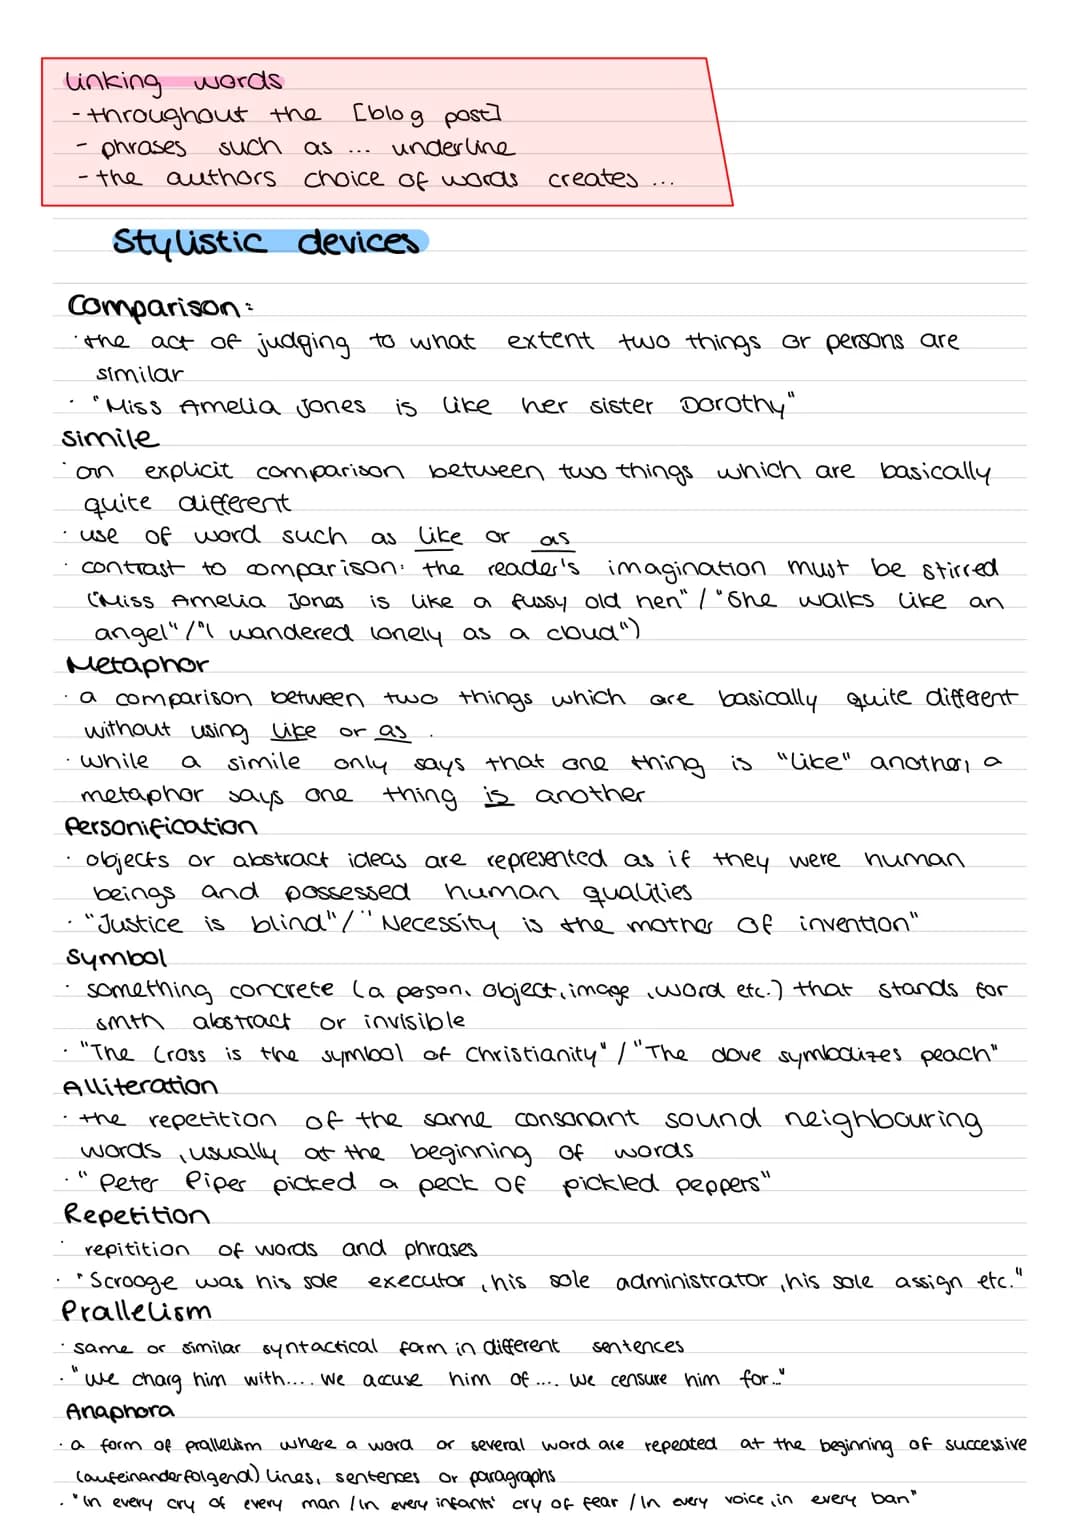 linking words
- throughout the [blog post]
- phrases such as ... underline
- the authors choice of words creates ...
Stylistic devices
Comparison:
· the act of judging to what extent two things or persons are
similar
· "Miss Amelia Jones is like her sister Dorothy"
simile
· an explicit comparison between two things which are basically
quite different
· use of word such as like or as
· contrast to comparison: the reader's imagination must be stirred
("Miss Amelia Jones is like a fussy old hen" / "She walks like an
angel" / "I wandered lonely as a cloud")
Metaphor
· a comparison between two things which are basically quite different
without using like or as .
· while a simile only says that one thing is "like" another, a
metaphor says one thing is another
Personification
· objects or abstract ideas are represented as if they were human
beings and possessed human qualities
· "Justice is blind" / "Necessity is the mother of invention"
Symbol
· something concrete (a person, object, image, word etc.) that stands for
smth abstract or invisible
· "The Cross is the symbol of Christianity" / "The dove symbolizes peach"
Alliteration
· the repetition of the same consonant sound neighbouring
words, usually at the beginning of words
· "Peter Piper picked a peck of pickled peppers"
Repetition
· repitition of words and phrases
· "Scrooge was his sole executor, his sole administrator, his sole assign etc."
Prallelism
· same or similar syntactical form in different sentences
· "we charg him with.... we accuse him of .... we censure him for..."
Anaphora
· a form of prallelism where a word or several word are repeated at the beginning of successive
(aufeinanderfolgend) lines, sentences or paragraphs
· "In every cry of every man / In every infants' cry of fear / In every voice, in every ban"